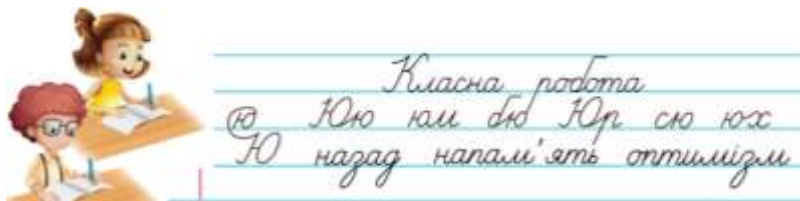 Класна робота
ю Юю юм бю Юр сю юх
Ю назад напам'ять оптимізм